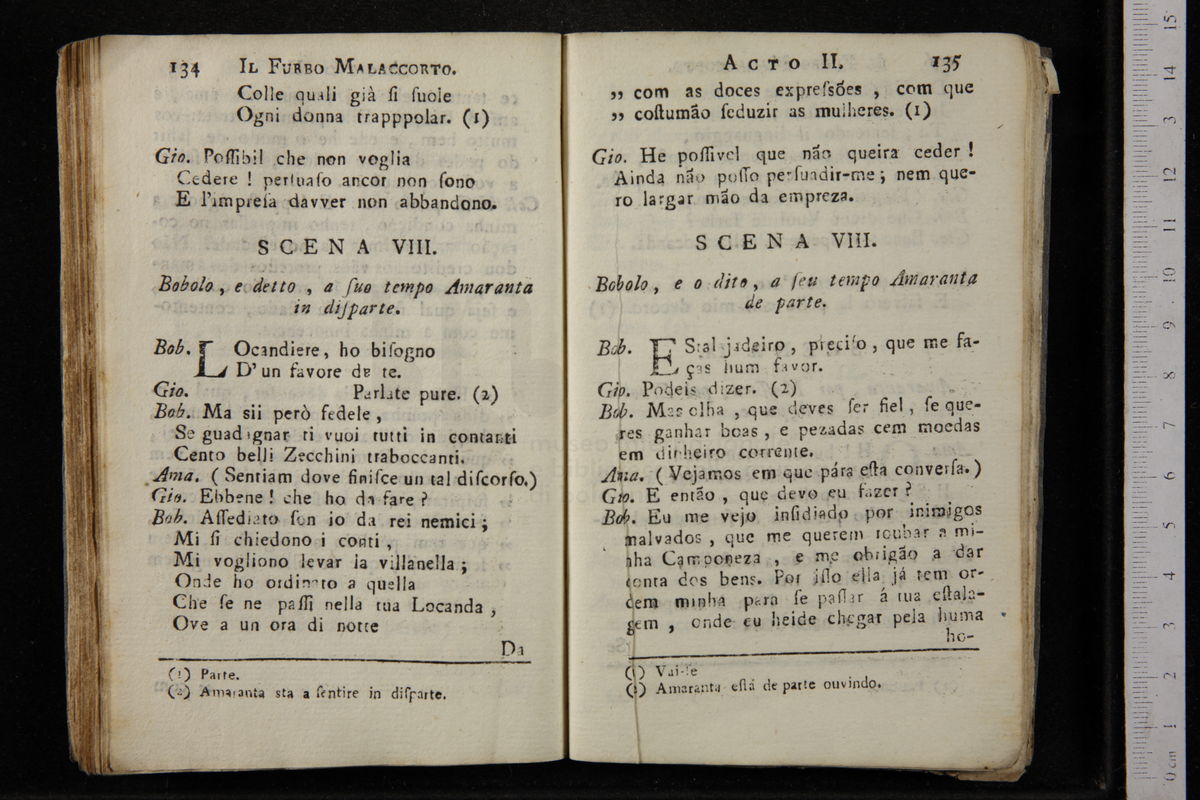 134 IL FURBO MALACCORTO.
Colle quali già ſi ſuole
Ogni donna trapppolar. (1)
Gio. Poſſibil che non voglia
Cedere ! perſuaſo ancor non ſono
E l'impreſa davver non abbandono.
SCENA VIII.
Bobolo, e detto, a ſuo tempo Amaranta
in diſparte.
Bob. LOcandiere, ho biſogno
D' un favore de te.
Gio. Parlate pure. (2)
Bob. Ma sii però fedele,
Se guadagnar ti vuoi tutti in contanti
Cento belli Zecchini traboccanti.
Ama. ( Sentiam dove finiſce un tal diſcorſo.)
Gio. Ebbene ! che ho da fare ?
Bob. Aſſediato ſon io da rei nemici ;
Mi ſi chiedono i conti ,
Mi vogliono levar la villanella ;
Onde ho ordinato a quella
Che ſe ne paſſi nella tua Locanda ,
Ove a un ora di notte
Da
(1) Parte.
(2) Amaranta sta a ſentire in diſparte.
ACTO II. 135
„ com as doces expreſsões , com que
„ coſtumão ſeduzir as mulheres. (1)
Gio. He poſſivel que não queira ceder !
Ainda não poſſo perſuadir-me ; nem que-
ro largar mão da empreza.
SCENA VIII.
Bobolo, e o dito, a ſeu tempo Amaranta
de parte.
Bob. EStaljadeiro , preciſo , que me fa-
ças hum favor.
Gio. Podeis dizer. (2)
Bob. Mas olha , que deves ſer fiel, ſe que-
res ganhar boas , e pezadas cem moedas
em dinheiro corrente.
Ama. ( Vejamos em que pára eſta converſa. )
Gio. E então , que devo eu fazer ?
Bob. Eu me vejo inſidiado por inimigos
malvados , que me querem roubar a mi-
nha Camponeza , e me obrigão a dar
conta dos bens. Por iſſo ella já tem or-
dem minha para ſe paſſar á tua eſtala-
gem , onde eu heide chegar pela huma
ho-
(1) Vai-ſe
(2) Amaranta eſtá de parte ouvindo.
15
14
13
12
11
10
9
8
7
6
5
4
3
2
1
0 cm